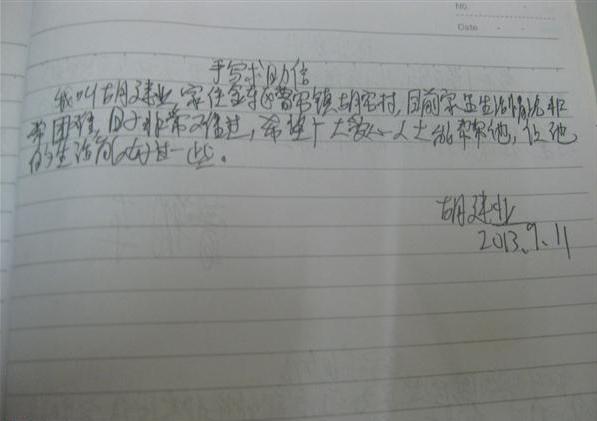 No.
Date
手写求助信
我叫胡建业,家住金东区曹宅镇胡宅村,目前家庭生活情况非
常困难,日子非常难过,希望广大爱心人士能帮帮他,让他
的生活能好过一些。
胡建业
2013.9.11